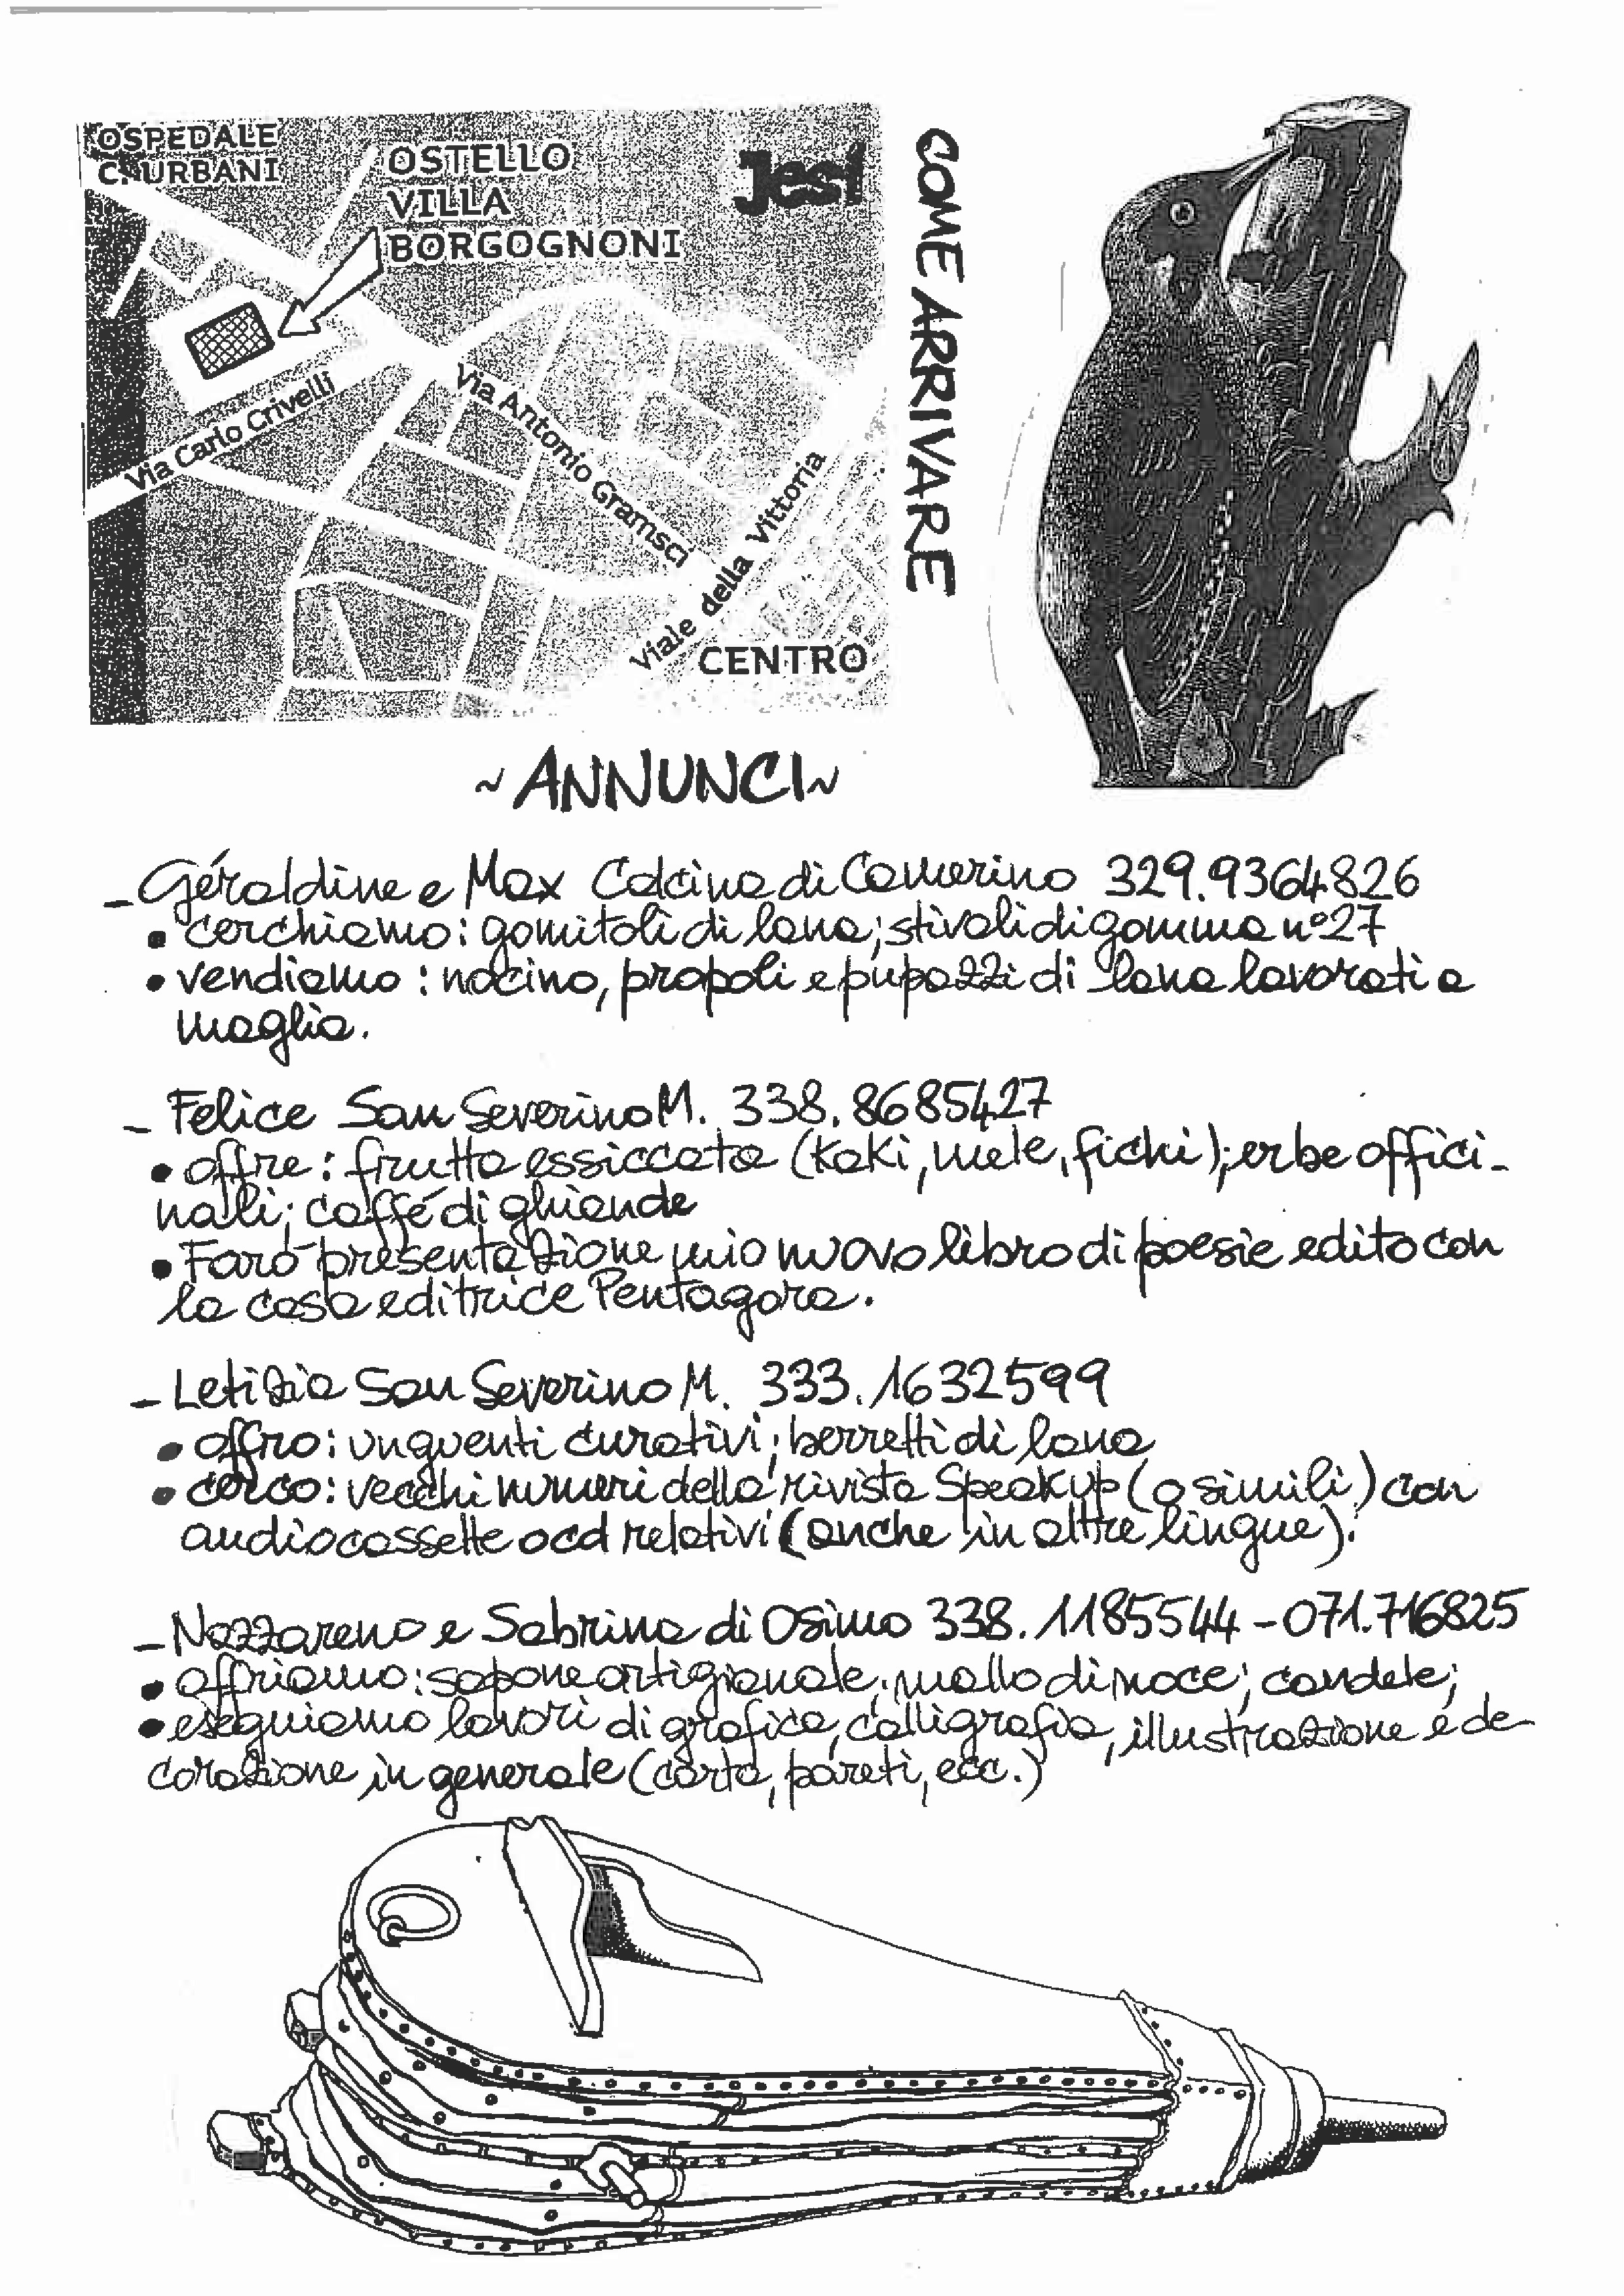 OSPEDALE
C. URBANI
OSTELLO
VILLA
BORGOGNONI
Jesi
COME ARRIVARE
Via Carlo Crivelli
Via Antonio Gramsci
Viale della Vittoria
CENTRO
~ANNUNCI~
- Géraldine e Max Calcina di Camerino 329.9364826
• cerchiamo: gomitoli di lana; stivali di gomma n°27
• vendiamo: nocino, propoli e pupazzi di lana lavorati a
maglia.
- Felice San Severino M. 338.8685427
• offre: frutta essiccata (kaki, mele, fichi); erbe offici-
nali; caffé di ghiande
• Farò presentazione mio nuovo libro di poesie edito con
la casa editrice Pentagora.
- Letizia San Severino M. 333.1632599
• offro: unguenti curativi; berretti di lana
• cerco: vecchi numeri della rivista Speak up (o simili) con
audiocassette o cd relativi (anche in altre lingue).
- Nazzareno e Sabrina di Osimo 338.1185544 - 071.716825
• offriamo: sapone artigianale; mallo di noce; candele;
• eseguiamo lavori di grafica, calligrafia, illustrazione e de-
corazione in generale (carta, pareti, ecc.)